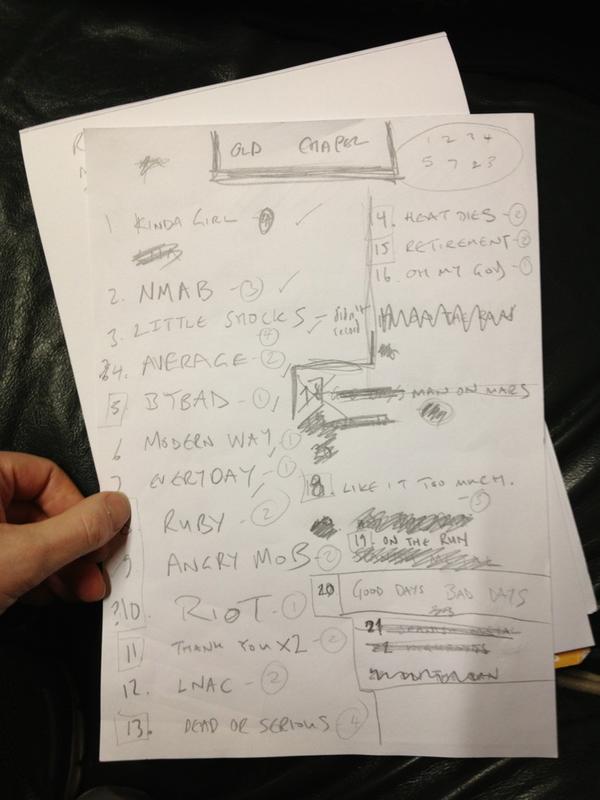 OLD CHAPEL
1 2 3 4
5 7 2 3
1 KINDA GIRL -
2. NMAB - 3
3. LITTLE SHOCKS - didn't record
4
4. AVERAGE - 2
5 BTBAD - 1
6 MODERN WAY 1
7 EVERYDAY - 1
RUBY - 2
9 ANGRY MOB - 2
?10. RIOT - 1
11 THANK YOU X2 - 2
12. LNAC - 2
13. DEAD OR SERIOUS - 4
14. HEAT DIES - 2
15 RETIREMENT - 2
16. OH MY GOD - 1
MAN ON MARS
18. LIKE IT TOO MUCH.
19. ON THE RUN
20 GOOD DAYS BAD DAYS
21